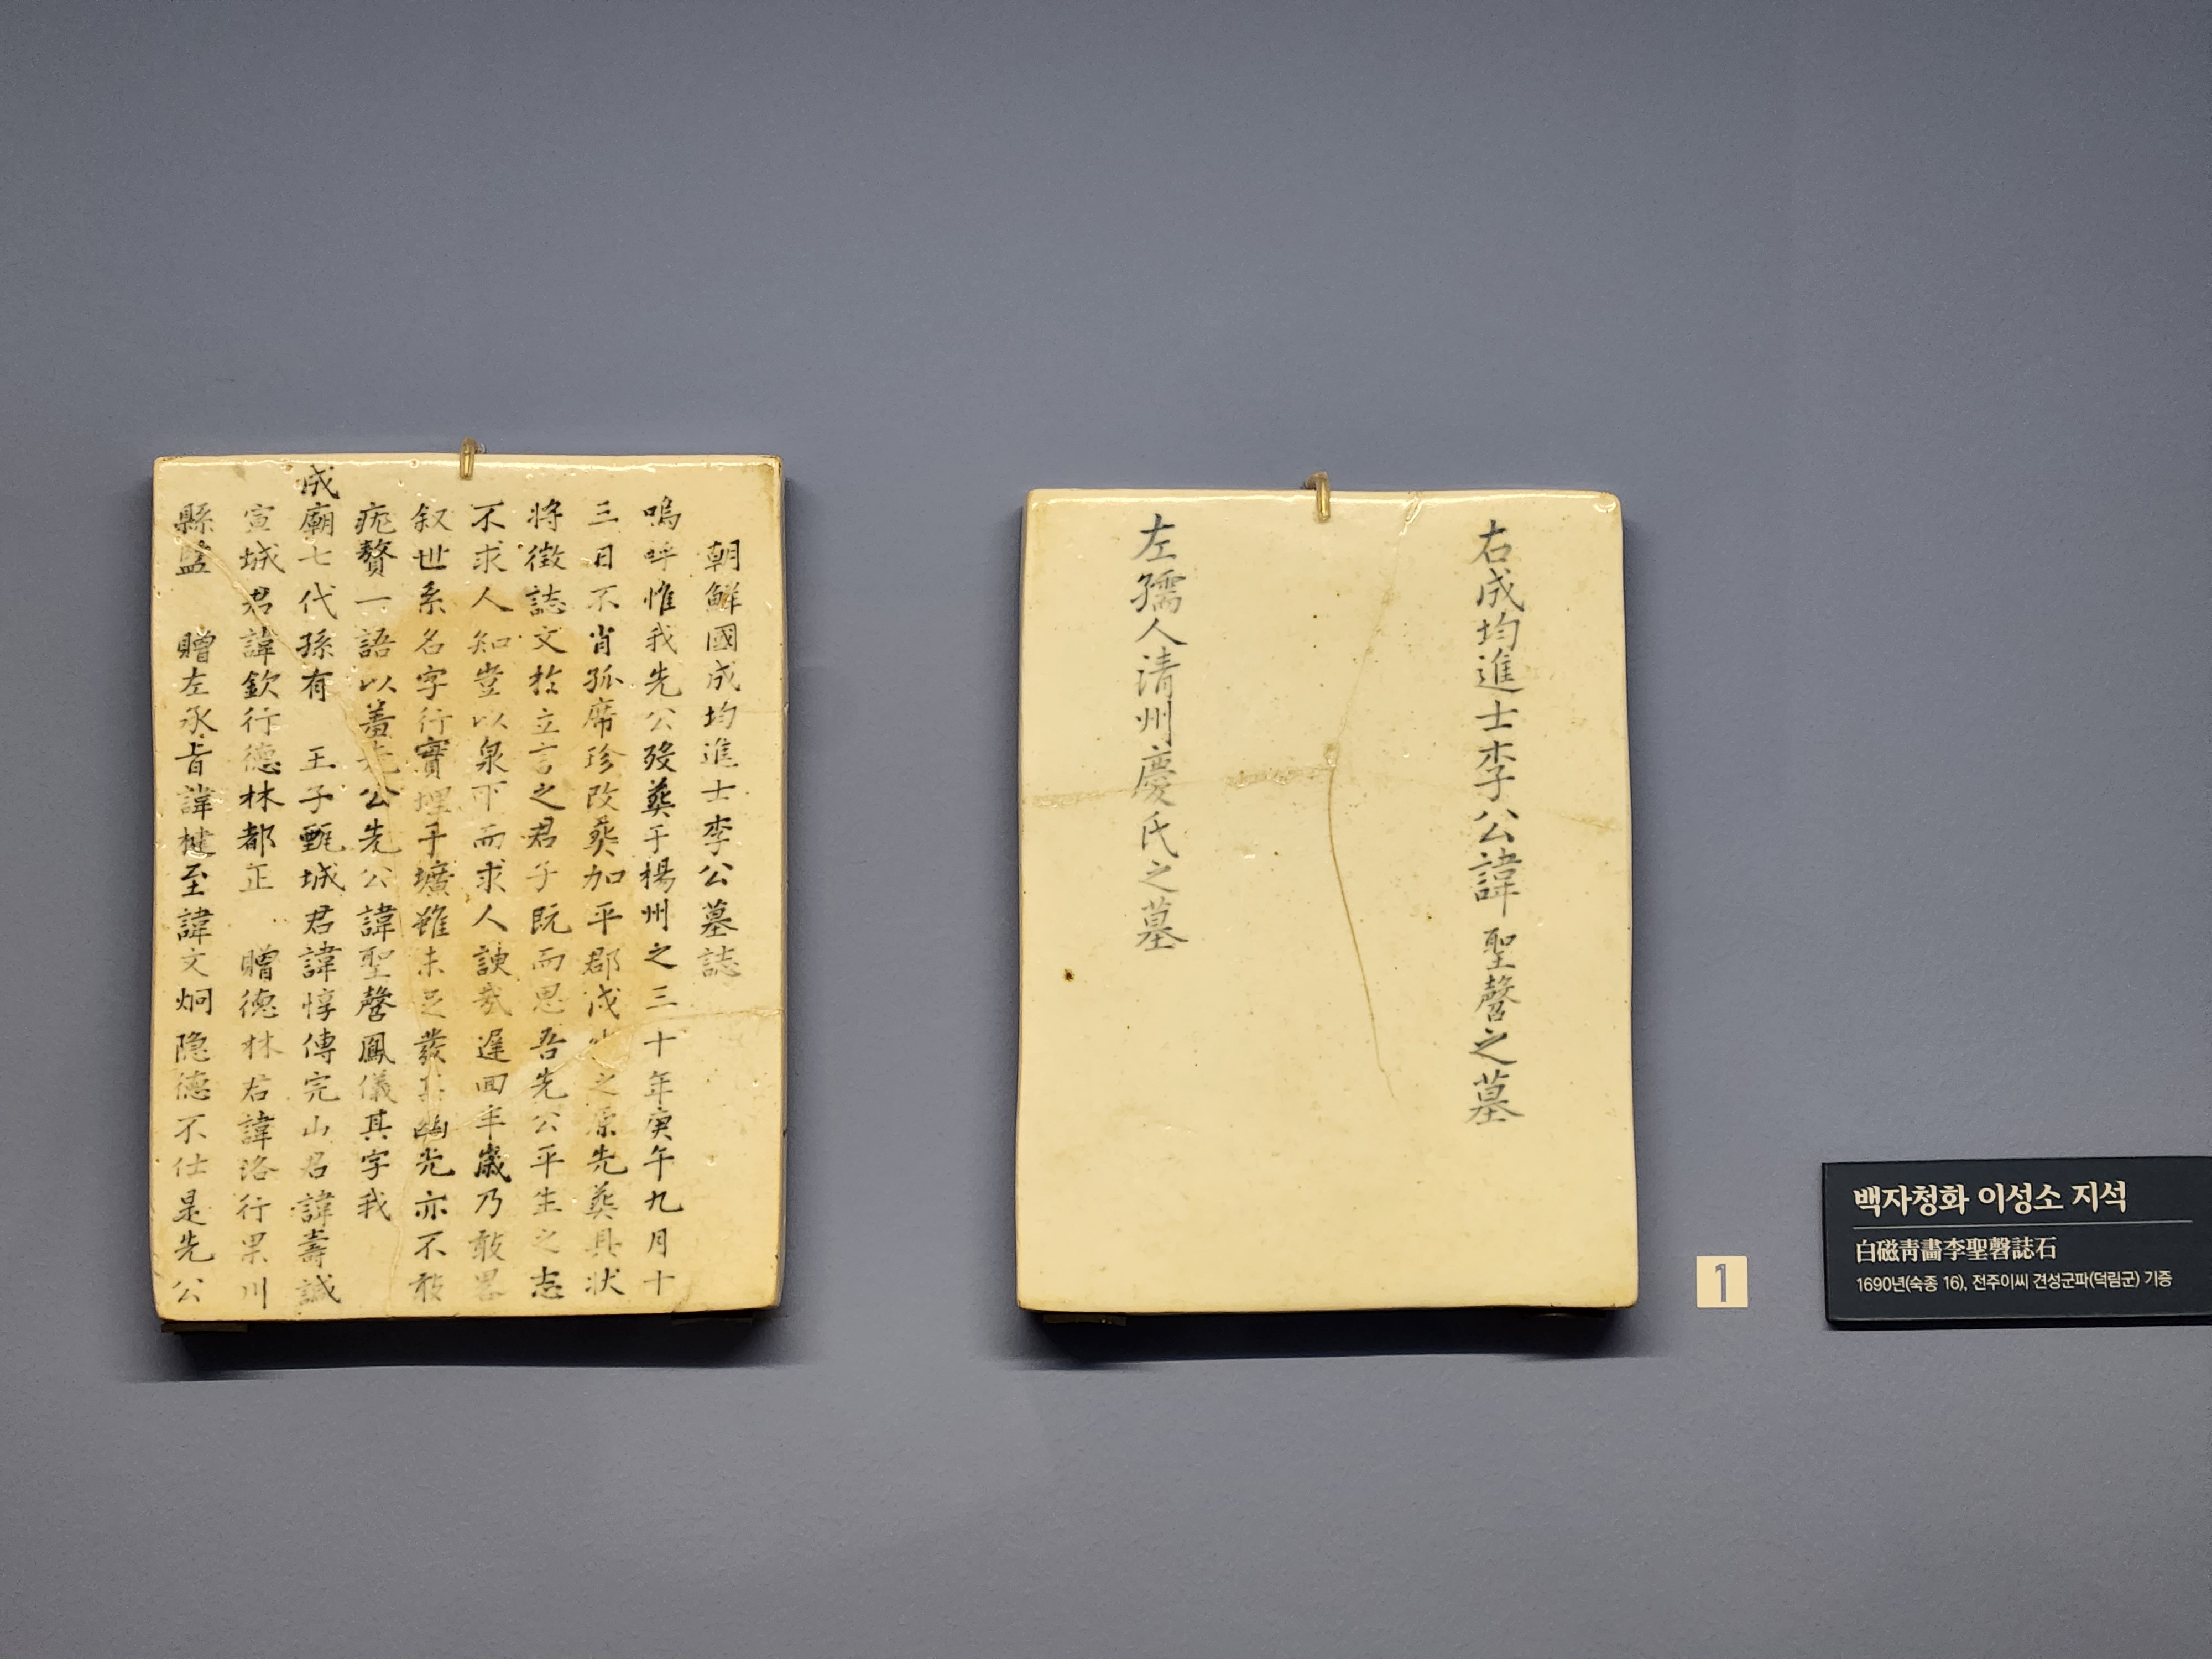 朝鮮國成均進士李公墓誌
嗚呼惟我先公歿葬于楊州之三十年庚午九月十
三日不肖孤席珍改葬加平郡之原先葬具狀
將徵誌文於立言之君子既而思吾先公平生之志
不求人知豈以泉下而求人諛哉遲回半歲乃敢畧
叙世系名字行實埋于壙雖未足發其幽光亦不敢
疣贅一語以羞先公先公諱聖䃌鳳儀其字我
成廟七代孫有 王子甄城君諱惇傳完山君諱壽誠
宣城君諱欽行德林都正 贈德林君諱洛行果川
縣監 贈左承旨諱楗至諱文炯隐德不仕是先公
右成均進士李公諱 聖䃌之墓
左孺人清州慶氏之墓
1
백자청화 이성소 지석
白磁靑畵李聖䃌誌石
1690년(숙종 16), 전주이씨 견성군파(덕림군) 기증